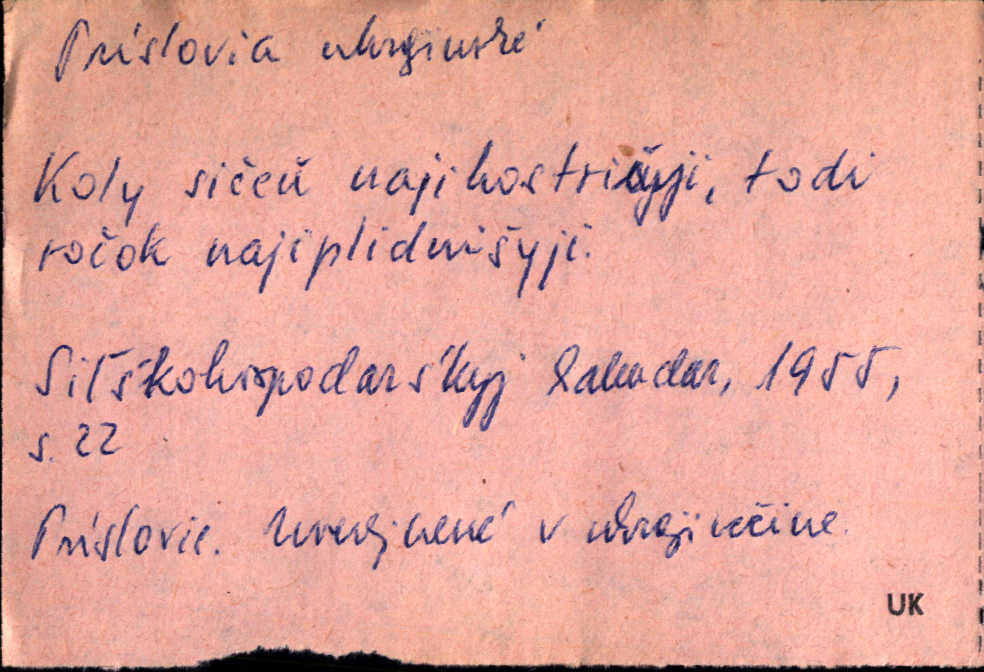 Príslovia ukrajinské
Koly sičeň najihostrišyji, todi
ročok najiplidnišyji.
Siľśkohospodarśkyj kalendar, 1955,
s. 22
Príslovie. Uverejnené v ukrajinčine.
UK